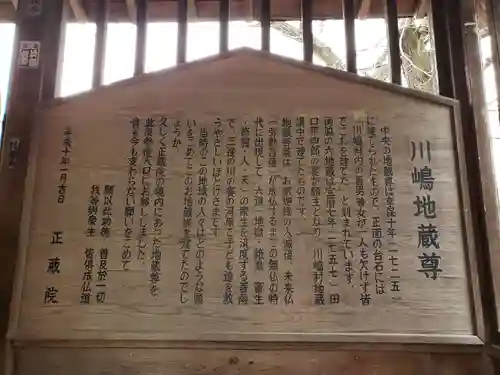 川嶋地蔵尊
中央の地蔵尊は享保十年(一七二五)
に建てられたもので、正面の台石には
「川嶋村内の善男善女が一人も欠けず皆
でこれを建てた」と刻まれています。
両脇の六地蔵は宝暦七年(一七五七)田
口平四郎の妻が願主となり、川嶋村地蔵
講中で建てたものです。
地蔵菩薩は、お釈迦様の入滅後、未来仏
(弥勒菩薩)が成仏するまでの無仏の時
代に出現して、六道(地獄・餓鬼・畜生
・修羅・人・天)の衆生を済度する菩薩
で、三途の川の賽の河原で子ども達を救
うやさしいほとけさまです。
当時のこの地域の人々はどのような願
いをこめてこのお地蔵様を建てたのでし
ょうか。
久しく正蔵院の境内にあった地蔵尊を
此度参道入口にお移ししました。
昔も今も変わらない願いをこめて
願以此功徳 普及於一切
我等与衆生 皆倶成仏道
平成十年一月吉日 正蔵院